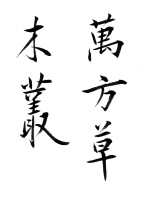 萬方草
木叢